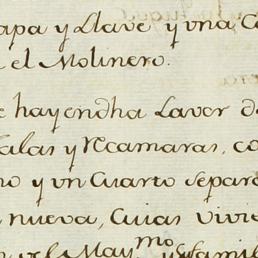 apa y Llave y una C
el Molinero.
e hay en dha Lavor d
Salas y Recamaras, co
o y un Cuarto Separ
nueva, Cuias vivi
el May.mo y familia